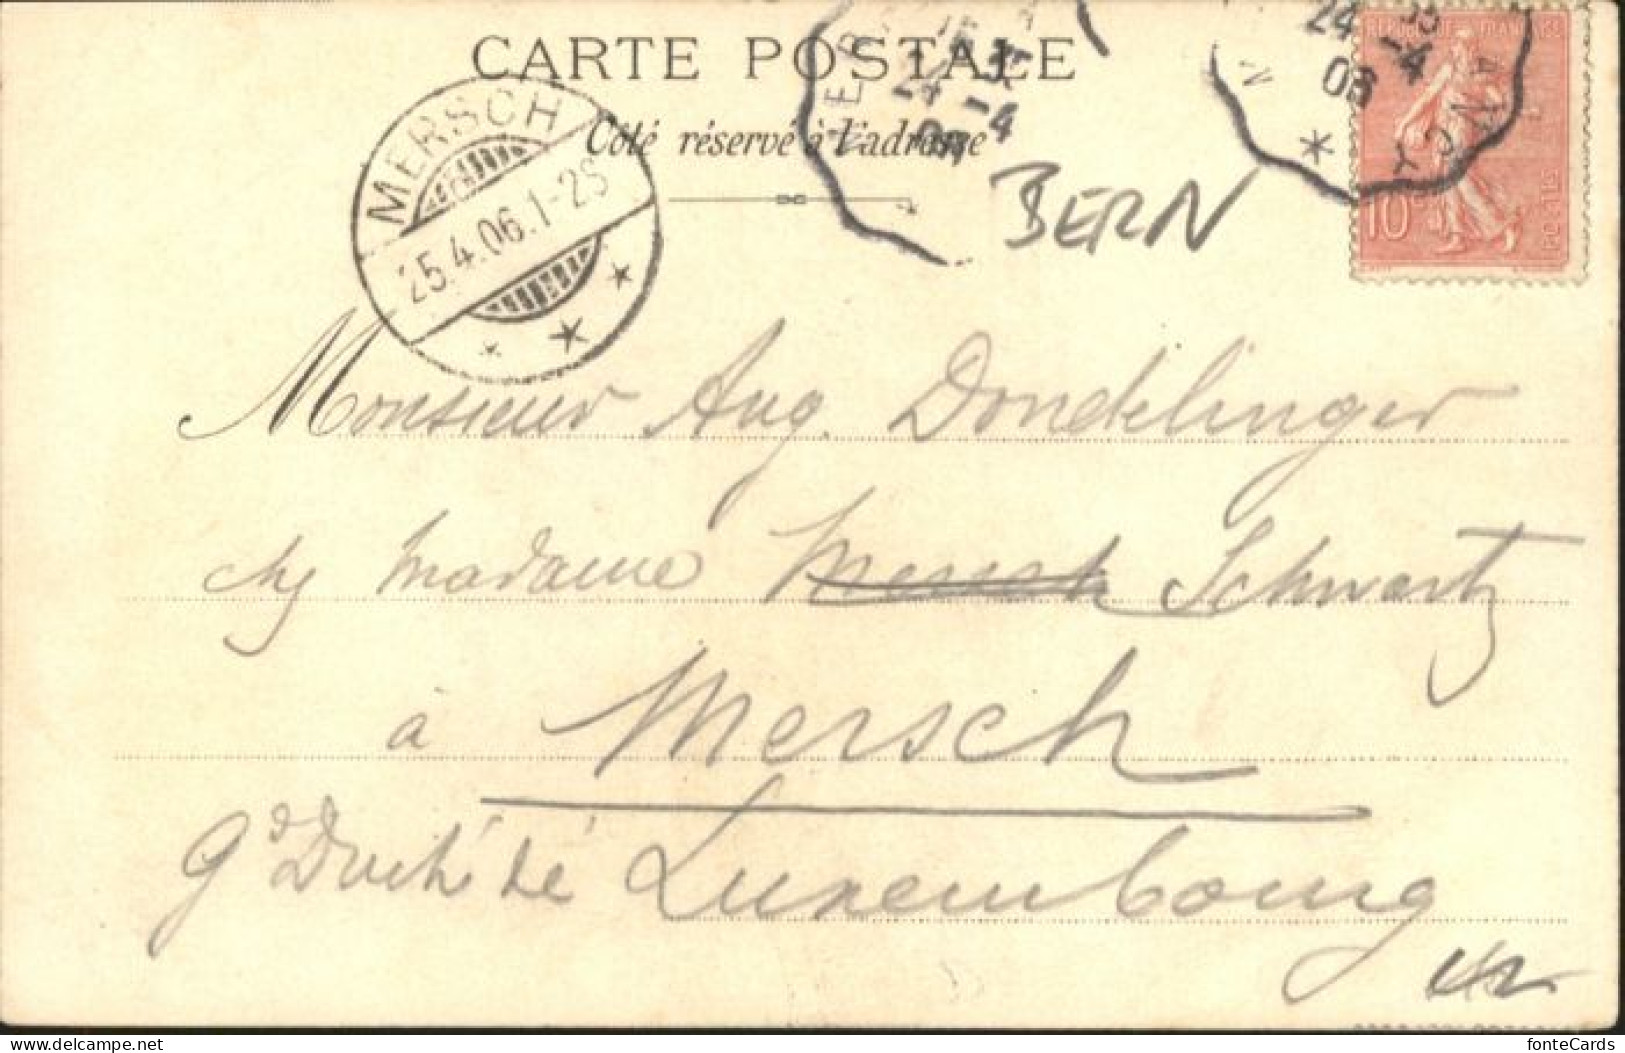 CARTE POSTALE
Côté réservé à l'adresse
MERSCH
25.4.06.1-2S
24 -4
06
24 -4
06
NANCY
REPUBLIQUE FRANÇAISE
10
POSTES
BERN
Monsieur Aug. Dondelinger
chz Madame Mersch Schwartz
à Mersch
Gd Duché de Luxembourg
fonteCards